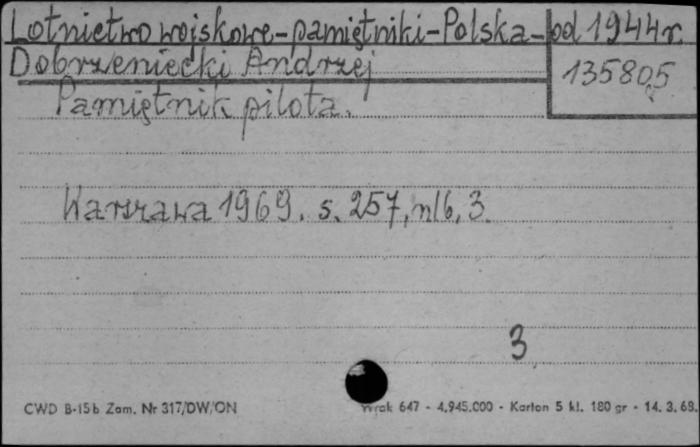 Lotnictwo wojskowe-pamiętniki-Polska-od 1944r.
Dobrzeniecki Andrzej
135805
Pamiętnik pilota.
Warszawa 1969. s. 257, nlb, 3.
3
CWD B-15b Zam. Nr 317/DW/ON
Wrak 647 - 4.945.000 - Karton 5 kl. 180 gr - 14. 3. 68.